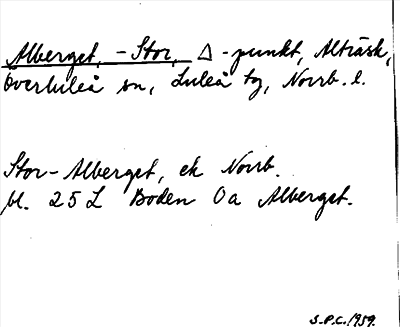 Alberget, -Stor, Δ-punkt, Alträsk,
Överluleå sn, Luleå tg, Norrb. l.
Stor-Alberget, ek Norrb.
bl. 25 L Boden 0a Alberget.
S.P.C. 1959.